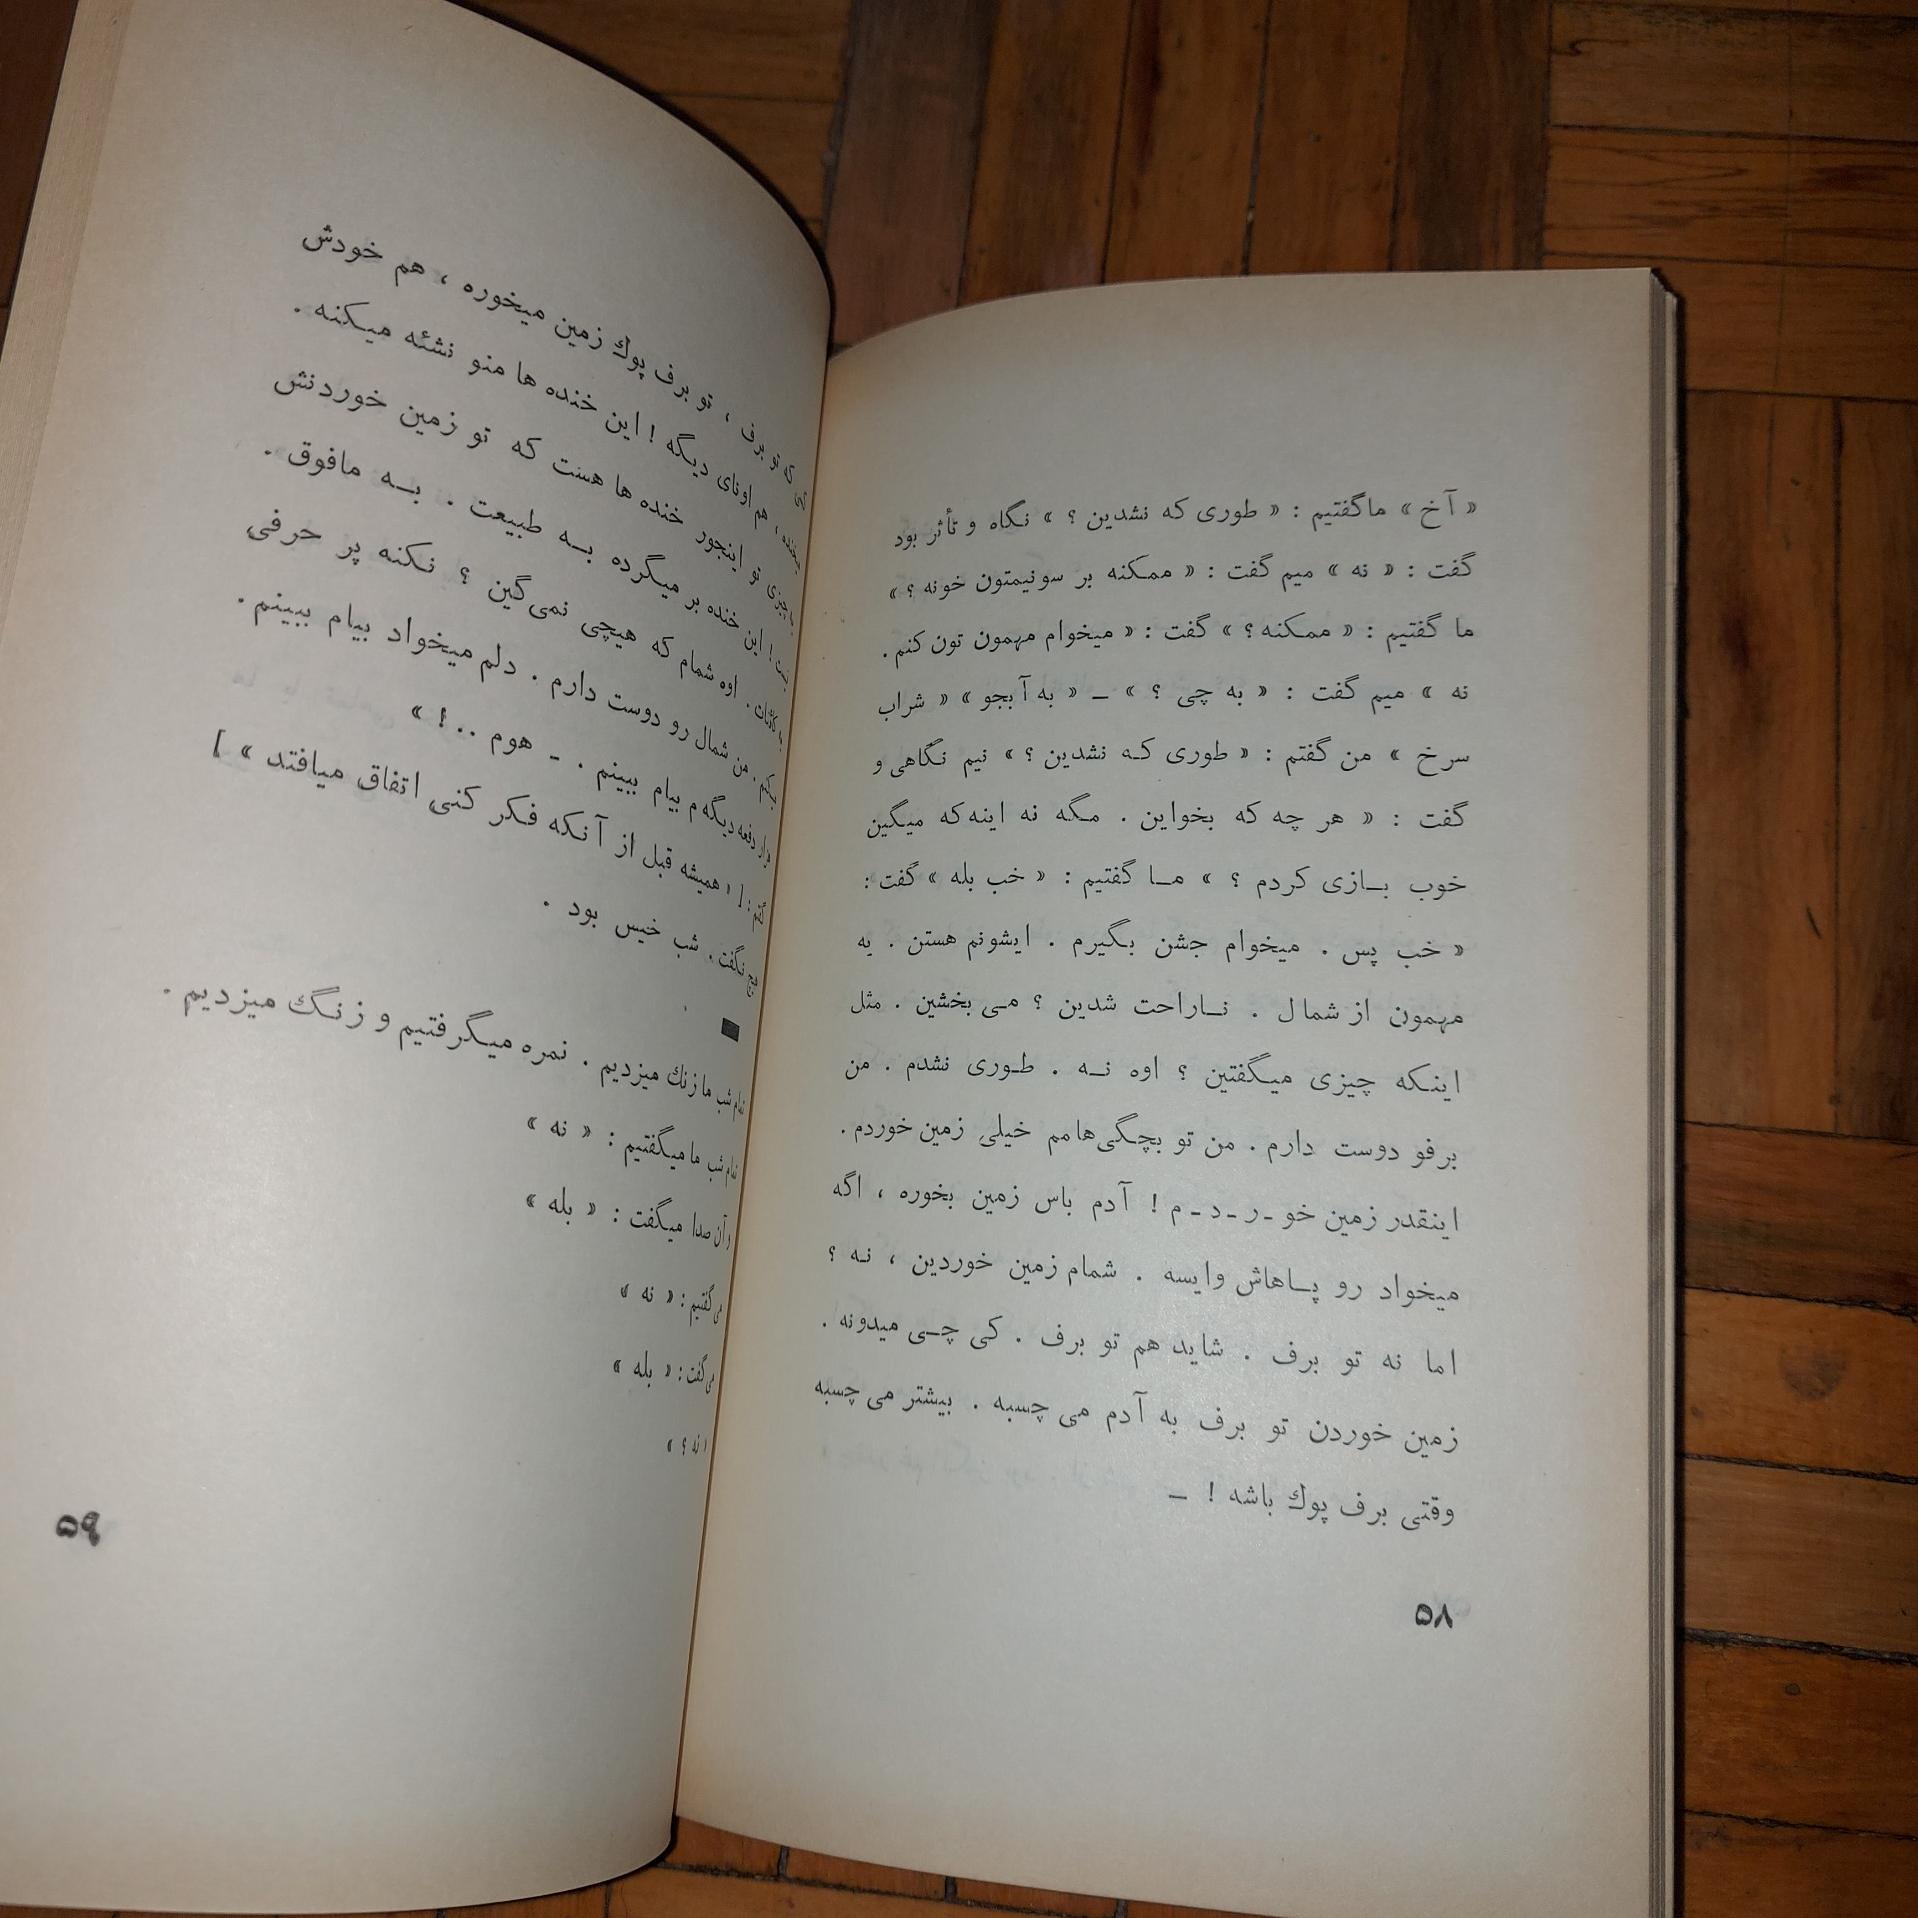 « آخ » ماگفتیم : « طوری که نشدین ؟ » نگاه و تأثر بود
گفت : « نه » میم گفت : « ممکنه بر سونیمتون خونه ؟ »
ما گفتیم : « ممکنه ؟ » گفت : « میخوام مهمون تون کنم .
نه » میم گفت : « به چی ؟ » ـ « به آبجو » « شراب
سرخ » من گفتم : « طوری که نشدین ؟ » نیم نگاهی و
گفت : « هر چه که بخواین . مگه نه اینه که میگین
خوب بازی کردم ؟ » ما گفتیم : « خب بله » گفت :
« خب پس . میخوام جشن بگیرم . ایشونم هستن . یه
مهمون از شمال . ناراحت شدین ؟ می بخشین . مثل
اینکه چیزی میگفتین ؟ اوه نه . طوری نشدم . من
برفو دوست دارم . من تو بچگی‌هامم خیلی زمین خوردم .
اینقدر زمین خو ـ ر ـ د ـ م ! آدم باس زمین بخوره ، اگه
میخواد رو پاهاش وایسه . شمام زمین خوردین ، نه ؟
اما نه تو برف . شاید هم تو برف . کی چی میدونه .
زمین خوردن تو برف به آدم می چسبه . بیشتر می چسبه
وقتی برف پوك باشه ! ـ
۵۸
که تو برف ، تو برف پوك زمین میخوره ، هم خودش
هم اونای دیگه ! این خنده ها منو نشئه میکنه .
تو اینجور خنده ها هست که تو زمین خوردنش
این خنده بر میگرده به طبیعت . به مافوق .
اوه شمام که هیچی نمی‌گین ؟ نکنه پر حرفی
من شمال رو دوست دارم . دلم میخواد بیام ببینم .
دفعه دیگه م بیام ببینم . ـ هوم .. ! »
گفتم : [ « همیشه قبل از آنکه فکر کنی اتفاق میافتد » ]
نگفت . شب خیس بود .
تمام شب ما زنك میزدیم . نمره میگرفتیم و زنگ میزدیم .
تمام شب ما میگفتیم : « نه »
و آن صدا میگفت : « بله »
می گفتیم : « نه »
می گفت : « بله »
« نه ؟ »
۵۹